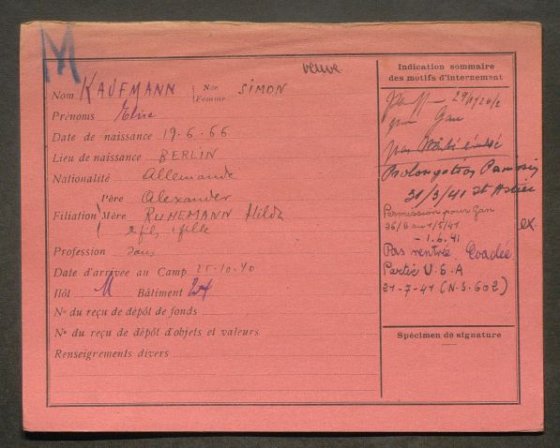 M
veuve
Nom KAUFMANN Née Femme SIMON
Prénoms Elise
Date de naissance 19-6-66
Lieu de naissance BERLIN
Nationalité Allemande
Filiation Père Alexander
Mère RUHEMANN Hilda
2 fils 1 fille
Profession Sans
Date d'arrivée au Camp 25-10-40
Ilôt M Bâtiment 24
N° du reçu de dépôt de fonds
N° du reçu de dépôt d'objets et valeurs
Renseignements divers
Indication sommaire
des motifs d'internement
Gan
Prolongation
31/3/41 St
Permission pour Gan
au 1/5/41 ex.
- 1.6.41
Pas rentrée. Evadée
Partie U.S.A
31-7-41 (N.S. 602)
Spécimen de signature